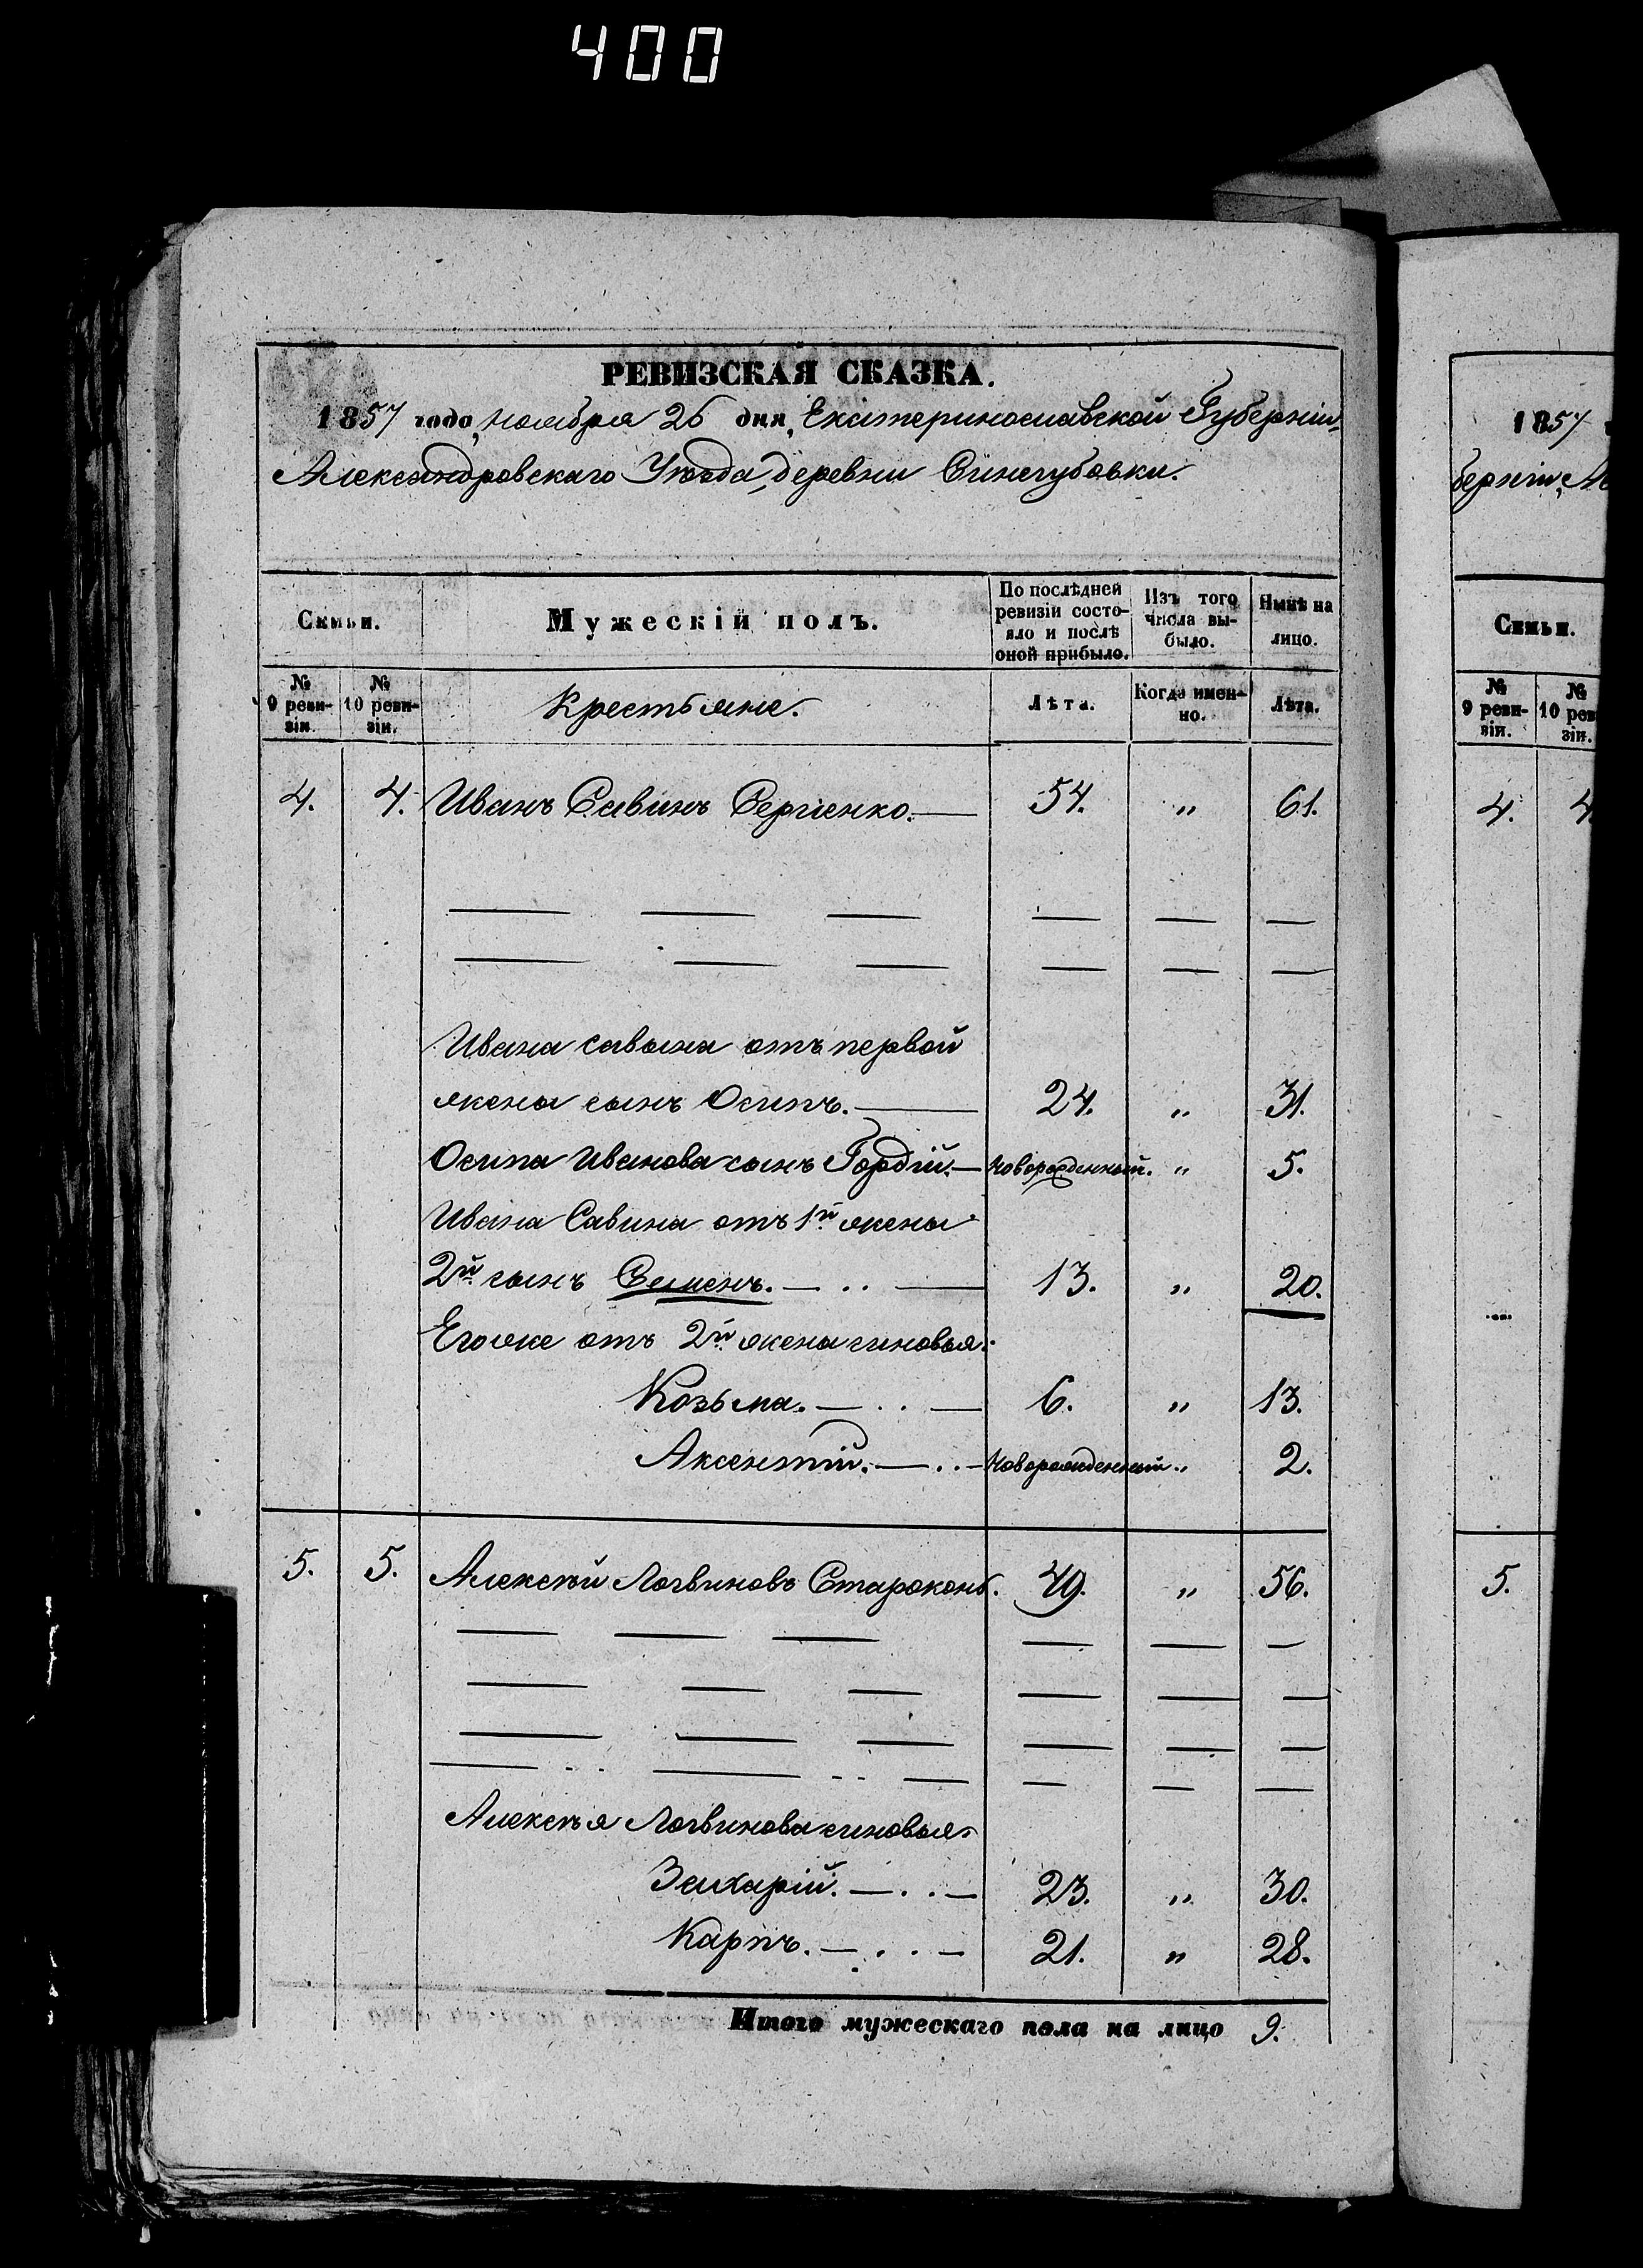 400
РЕВИЗСКАЯ СКАЗКА.
1857 года, ноября 26 дня, Екатеринославской Губерніи,
Александровскаго Уѣзда, деревни Синегубовки.
Семьи.
Мужескій полъ.
По послѣдней ревизіи состояло и послѣ оной прибыло.
Изъ того числа выбыло.
Нынѣ на лицо.
№ 9 ревизіи.
№ 10 ревизіи.
Крестьяне.
Лѣта.
Когда именно.
Лѣта.
4. 4. Иванъ Савинъ Сергіенко.— 54. „ 61.
Ивана Савина отъ первой
жены сынъ Осипъ.— 24. „ 31.
Осипа Иванова сынъ Гордій.— новорожденный. „ 5.
Ивана Савина отъ 1й жены
2й сынъ Семенъ.— 13. „ 20.
Егоже отъ 2й жены синовья:
Козьма.— 6. „ 13.
Аксентій.— новорожденный „ 2.
5. 5. Алексѣй Логвиновъ Староконь. 49. „ 56.
Алексѣя Логвинова синовья:
Захарій.— 23. „ 30.
Карпъ.— 21. „ 28.
Итого мужескаго пола на лицо 9.
1857
берніи, Ал
Семьи.
№ 9 ревизіи.
№ 10 рев
зіи.
4. 4.
5.